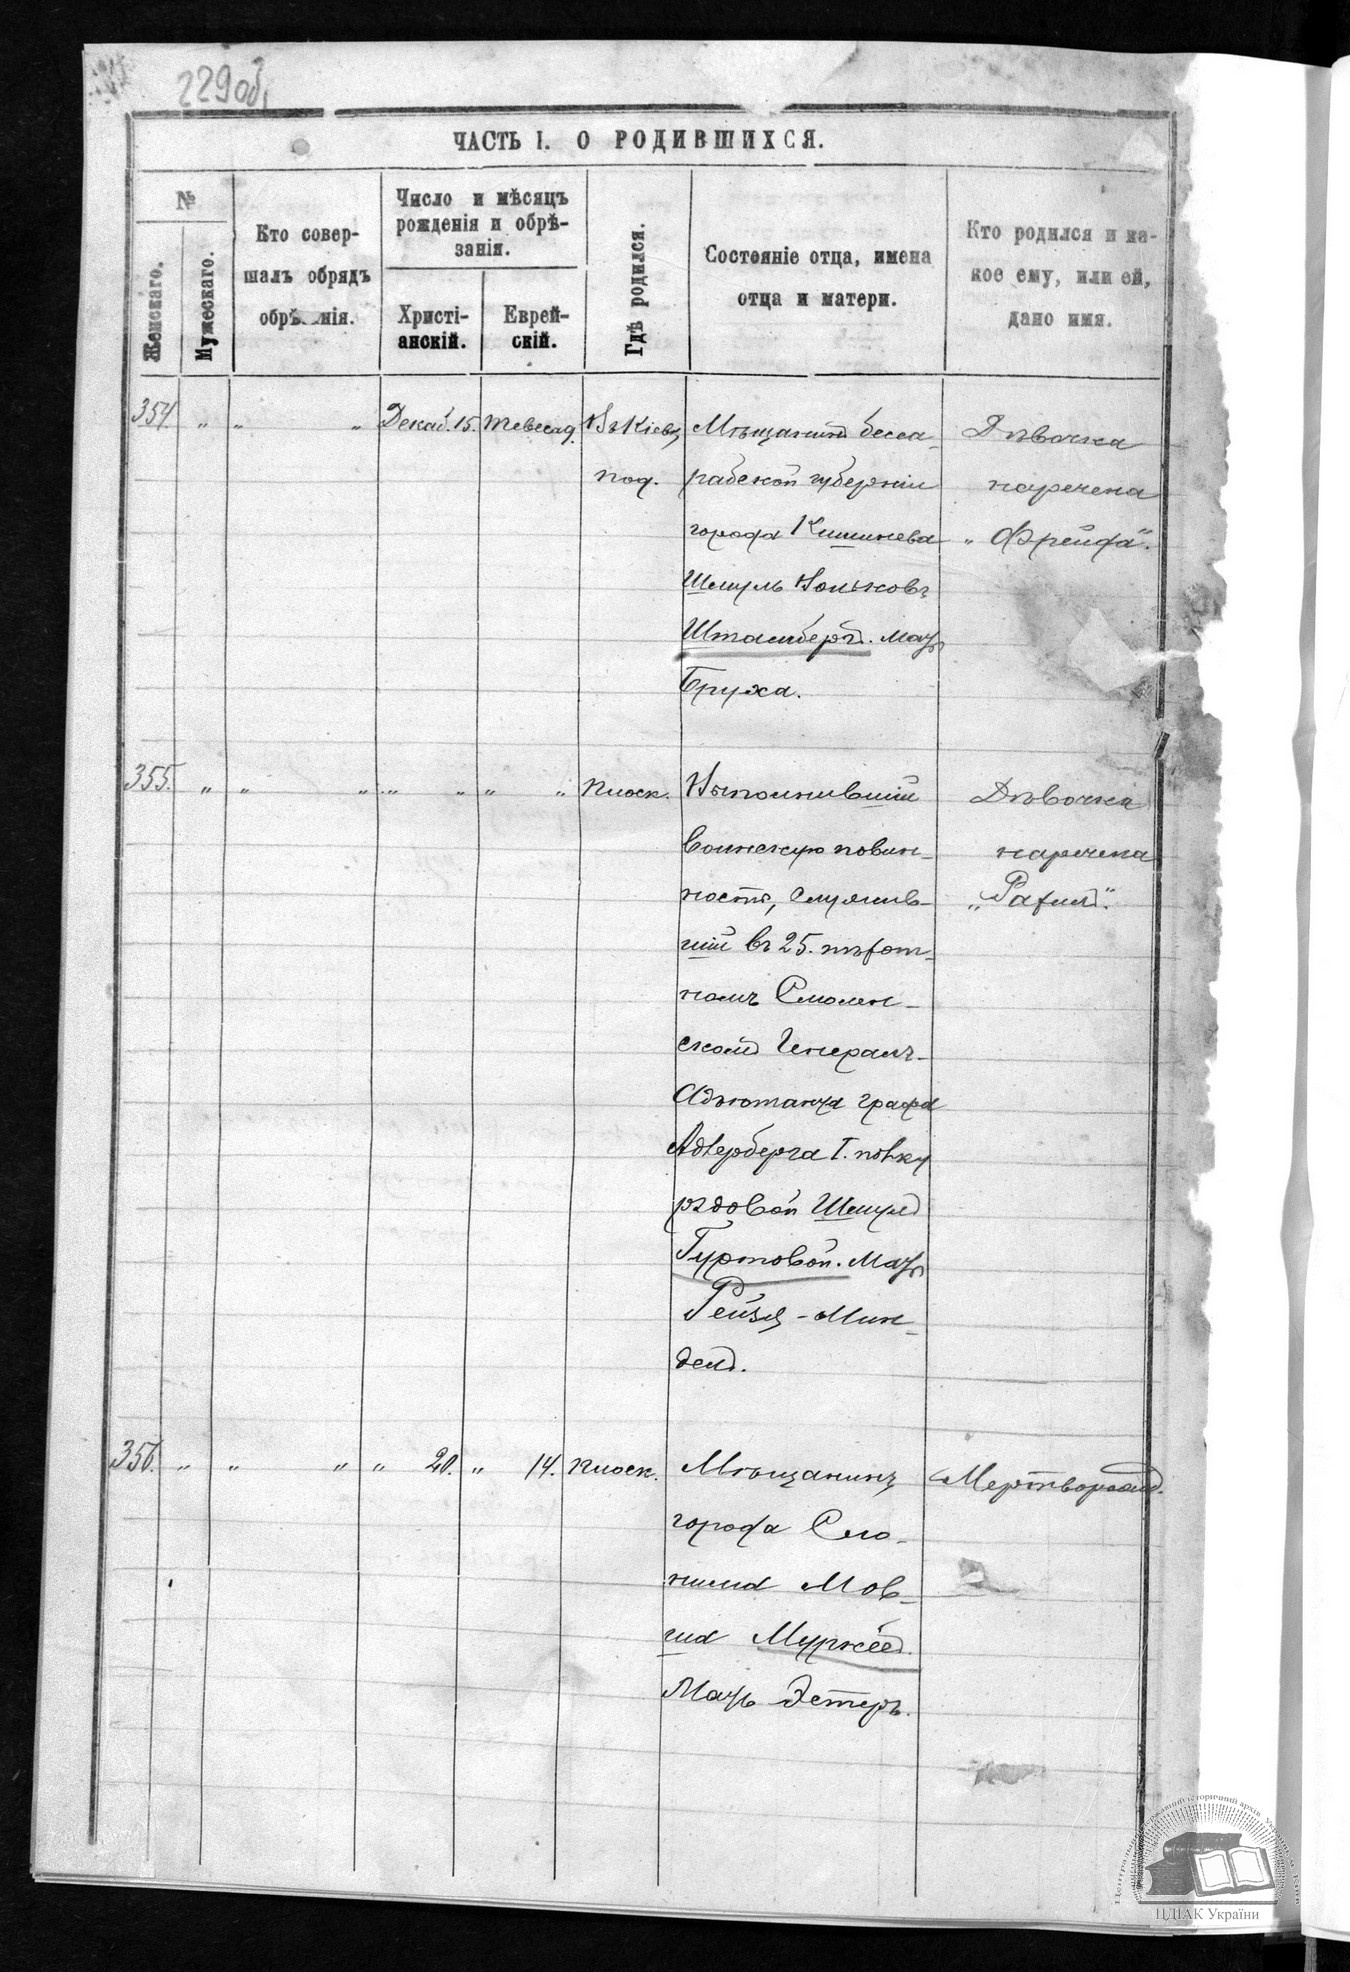 229 об.
ЧАСТЬ I. О РОДИВШИХСЯ.
№
Женскаго.
Мужескаго.
Кто совер-
шалъ обрядъ
обрѣ нія.
Число и мѣсяцъ
рожденія и обрѣ-
занія.
Христі-
анскій.
Еврей-
скій.
Гдѣ родился.
Состояніе отца, имена
отца и матери.
Кто родился и ка-
кое ему, или ей,
дано имя.
354. " " " Декаб. 15. Тевеса 9. Въ Кіевѣ
под.
Мѣщанинъ Бесса-
рабской губерніи
города Кишинева
Шмуль Вольковъ
Штамбергъ. Мать
Бруха.
Дѣвочка
наречена
"Фрейда".
355. " " " " " " " Плоск.
Выполнившій
воинскую повин-
ность, служив-
шій въ 25. пѣхот-
номъ Смолен-
скомъ Генералъ-
Адъютанта графа
Адлерберга I. полку
рядовой Шмуль
Гуртовой. Мать
Рейзя - Мин-
дель.
Дѣвочка
наречена
"Рахиль".
356. " " " " 20. " 14. Плоск.
Мѣщанинъ
города Сло-
нима Мов-
ша
Мать Эстеръ.
Мертворожд.
ЦДІАК України